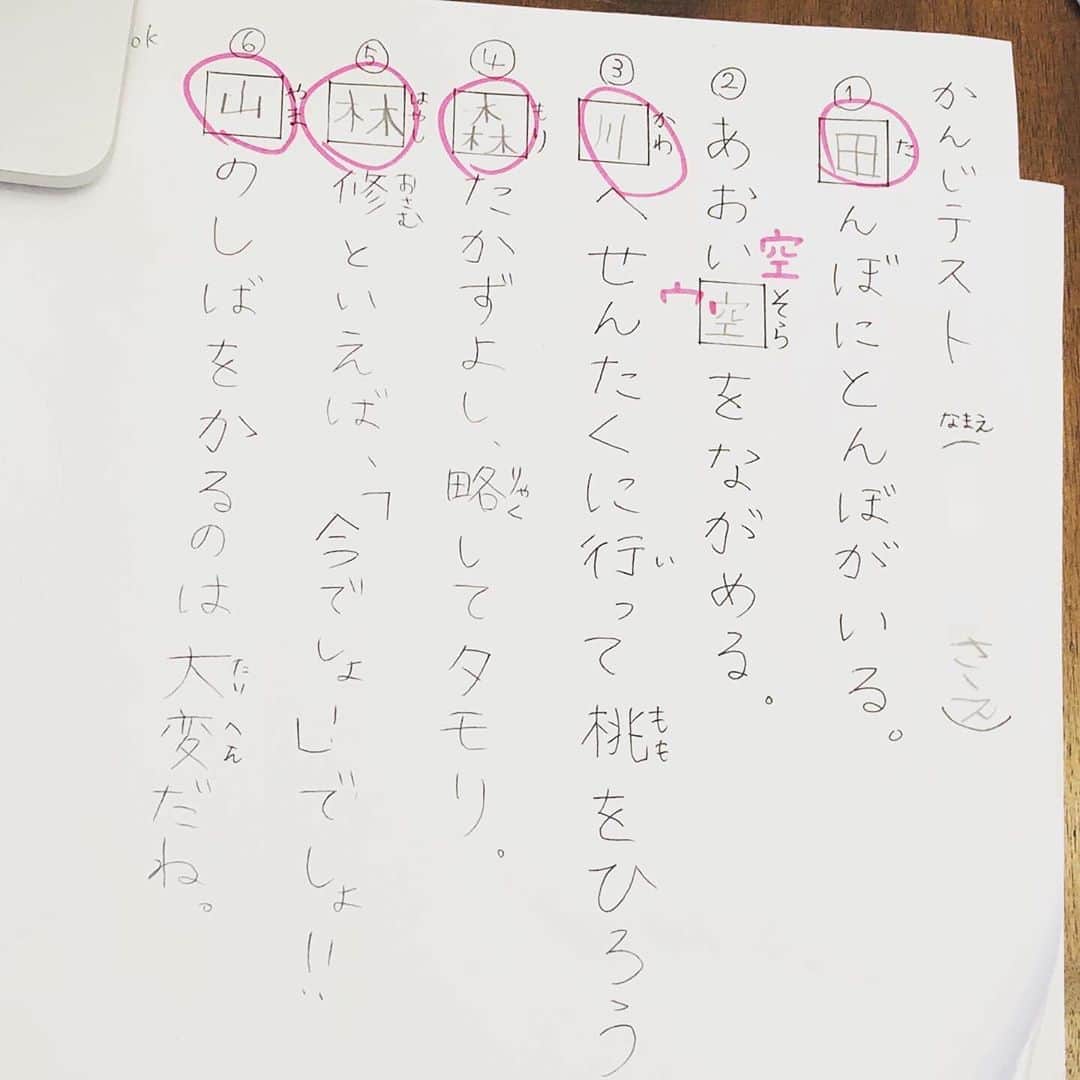 かんじテスト なまえ(さーえ)
① 田んぼにとんぼがいる。
た
② あおい空をながめる。
そら
空
宀
③ 川へせんたくに行って桃をひろう
かわ い もも
④ 森たかずよし、略してタモリ。
もり りゃく
⑤ 林修といえば、「今でしょ!」でしょ!!
はやし おさむ
⑥ 山のしばをかるのは大変だね。
やま たい へん
ok